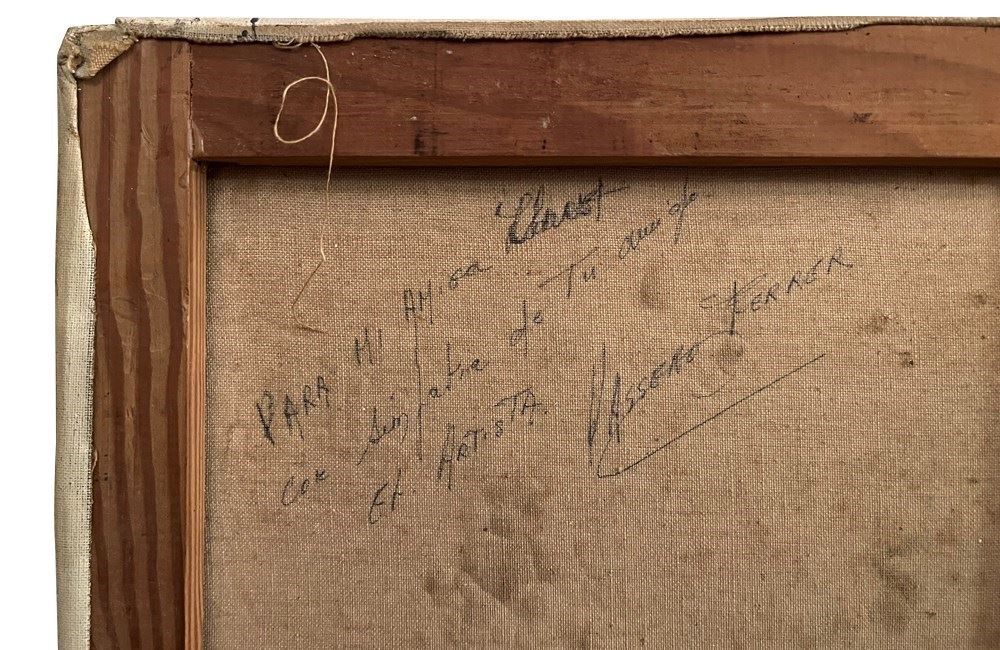 PARA MI AMIGA
con simpatia de Tu amigo
EL. ARTISTA. FERRER